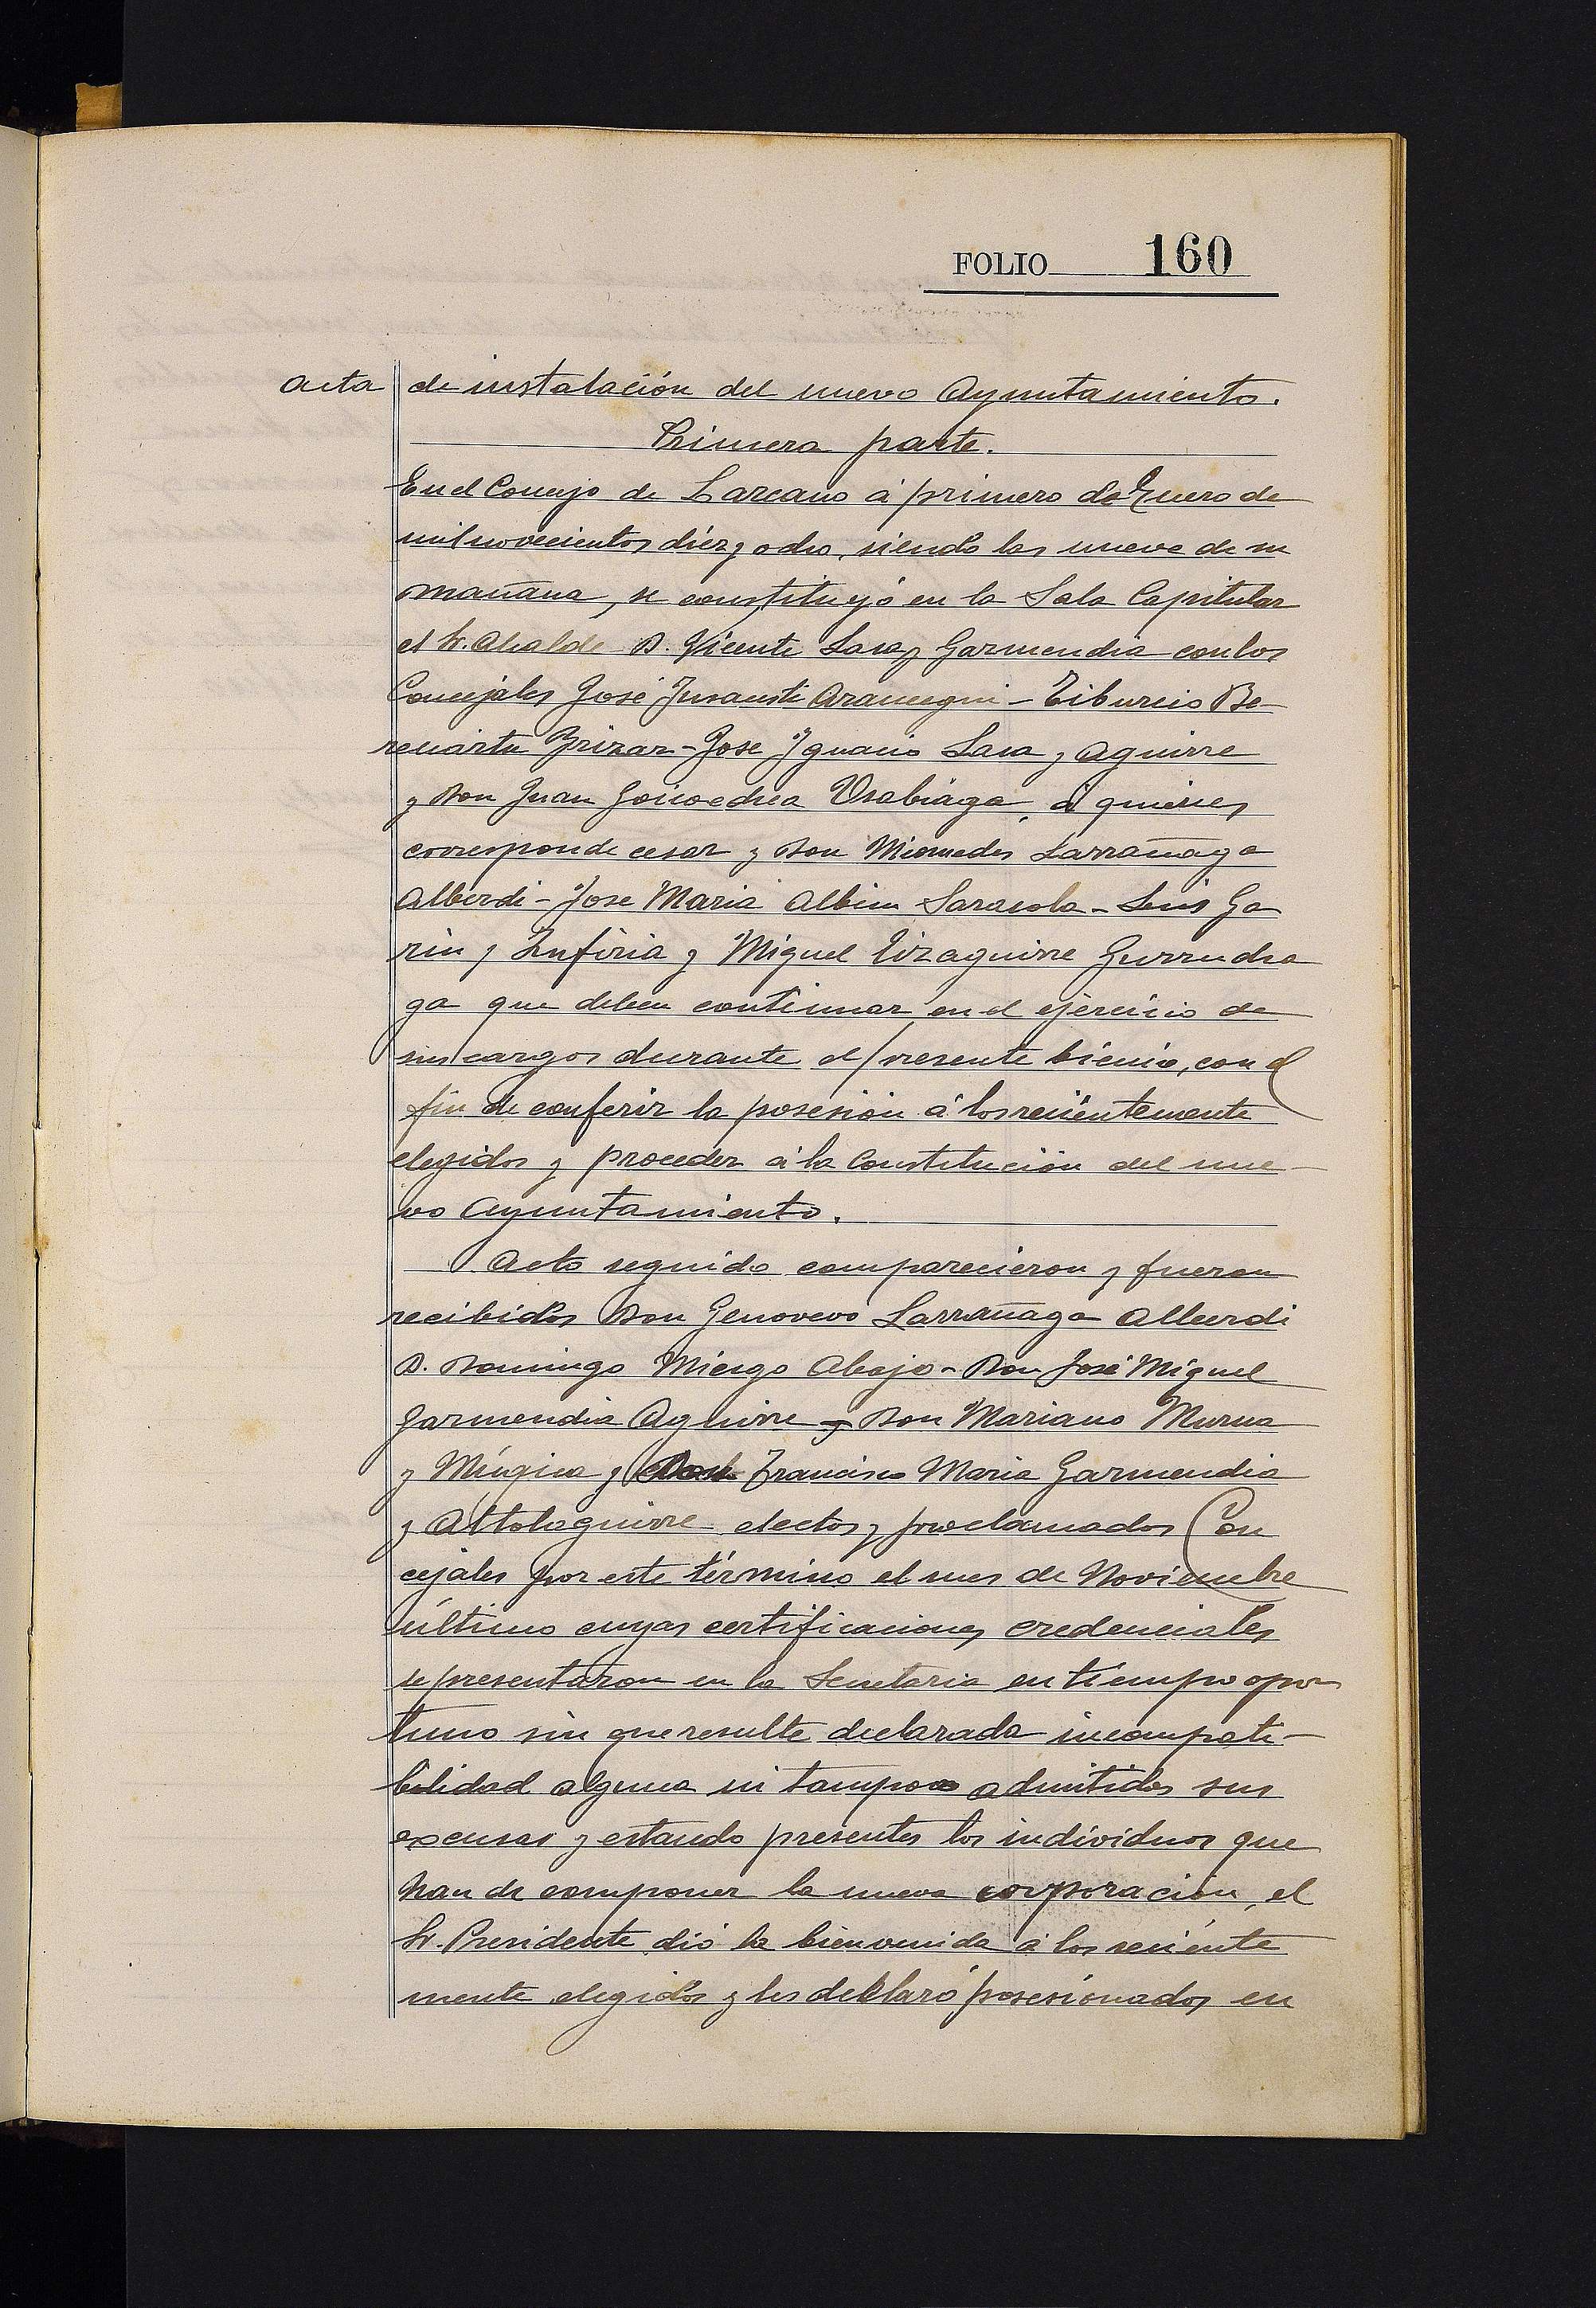 FOLIO 160
Acta de instalación del nuevo Ayuntamiento.
Primera parte.
En el Concejo de Lazcano á primero de Enero de
mil novecientos diéz y ocho, siendo las nueve de su
mañana, se constituyó en la Sala Capitular
el Sr. Alcalde D. Vicente Lasa y Garmendia con los
Concejales José Insausti Arancegui - Tiburcio Be-
reniartu Irizar - Jose Ignacio Lasa y Aguirre
y Don Juan Goicoechea Usabiaga, á quienes
corresponde cesar y Don Larrañaga
Alberdi - Jose Maria Albisu Sarasola - Luis Ga
rin y y Miguel Eizaguirre Gurrucha
ga que deben continuar en el ejercicio de
sus cargos durante el presente biénio, con el
fin de conferir la posesión á los reciéntemente
elegidos y proceder á la Constitución del nue-
vo Ayuntamiento.
Acto seguido comparecieron y fueron
recibidos Don Genovevo Larrañaga Alberdi
D. Domingo Abajo - Don José Miguel
Garmendia Aguirre y Don Mariano Murua
y Múgica y Don Francisco Maria Garmendia
y Altolaguirre electos y proclamados Con
cejales por este término el mes de Noviembre
último cuyas certificaciones credenciales
se presentaron en la Secretaria en tiempo opor
tuno sin que resulte declarada incompati-
bilidad alguna ni tampoco admitidas sus
excusas y estando presentes los individuos que
han de componer la nueva corporación, el
Sr. Presidente dió la bienvenida á los reciénte
mente elegidos y les declaró posesionados en